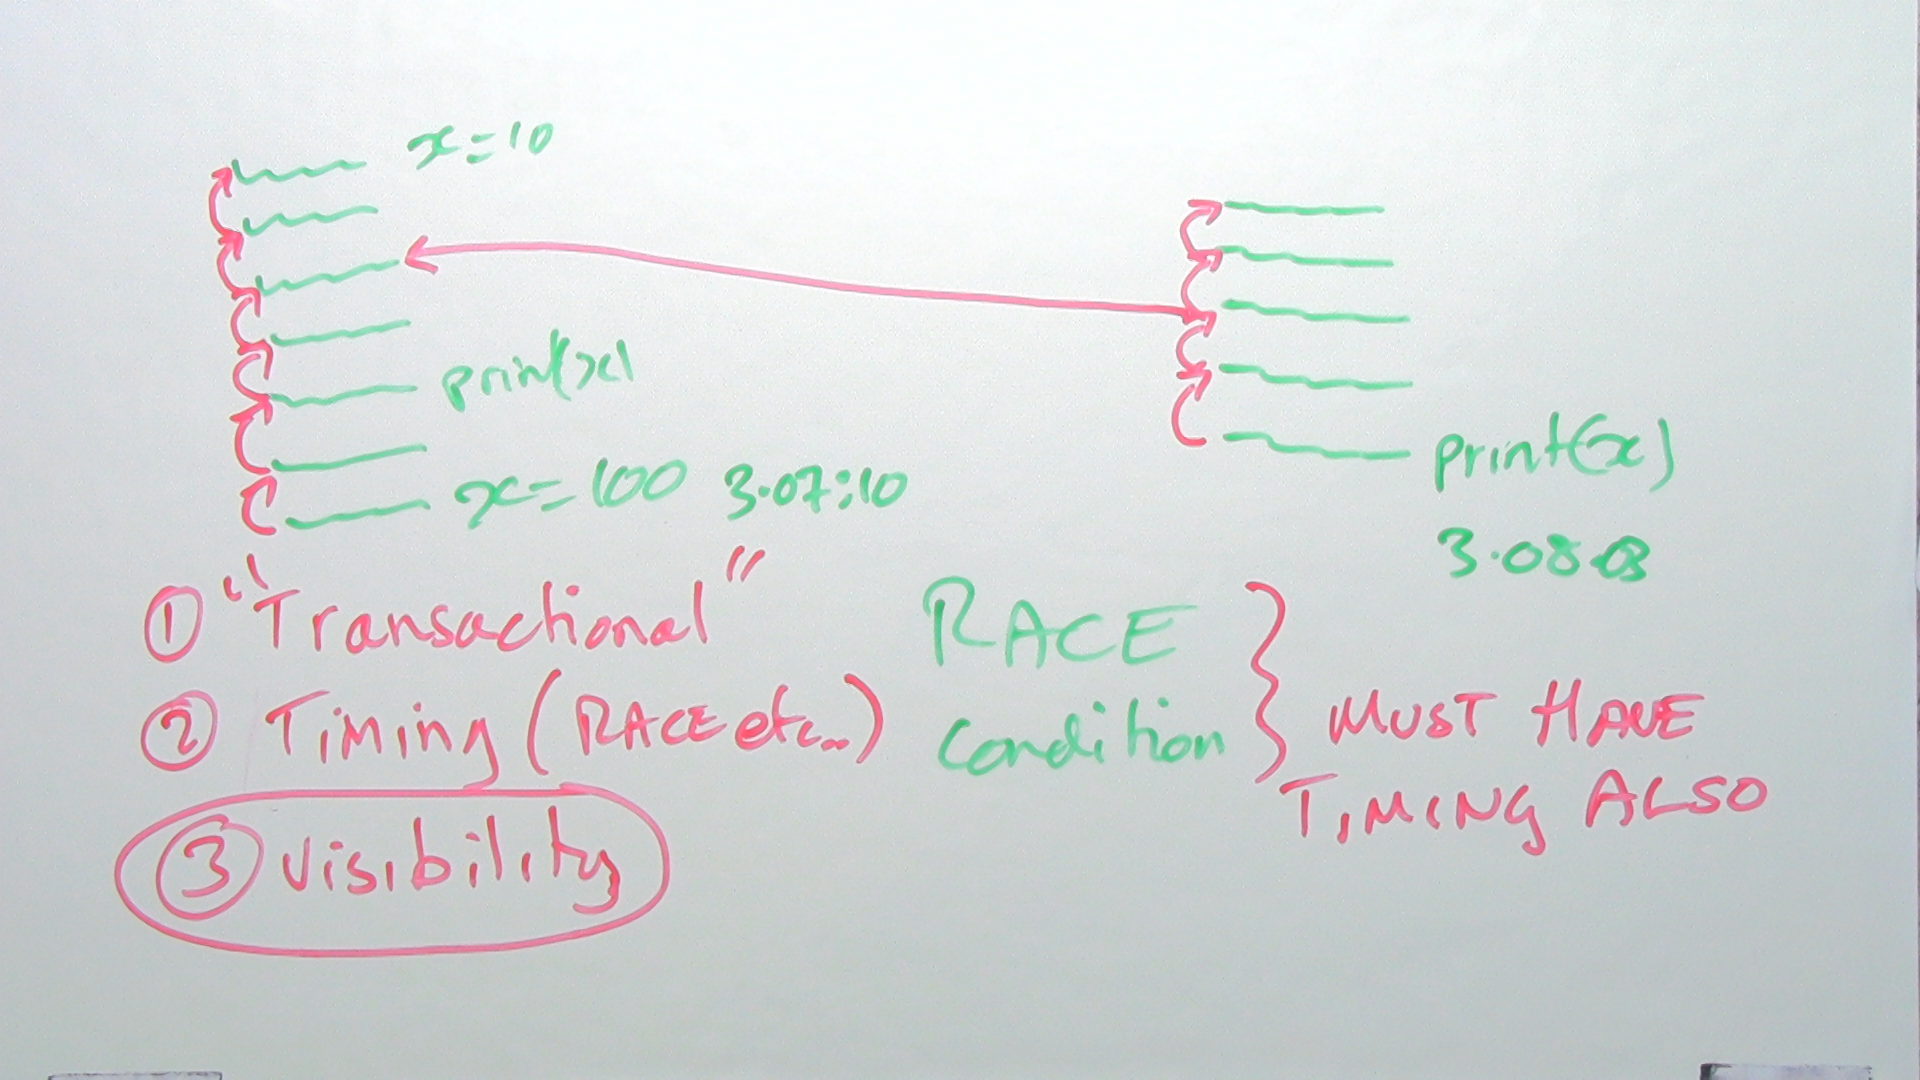 x=10
print(x)
x=100 3.07:10
print(x)
3.08.03
① "Transactional"
② Timing (RACE etc...)
③ visibility
RACE
condition
MUST HAVE
TIMING ALSO